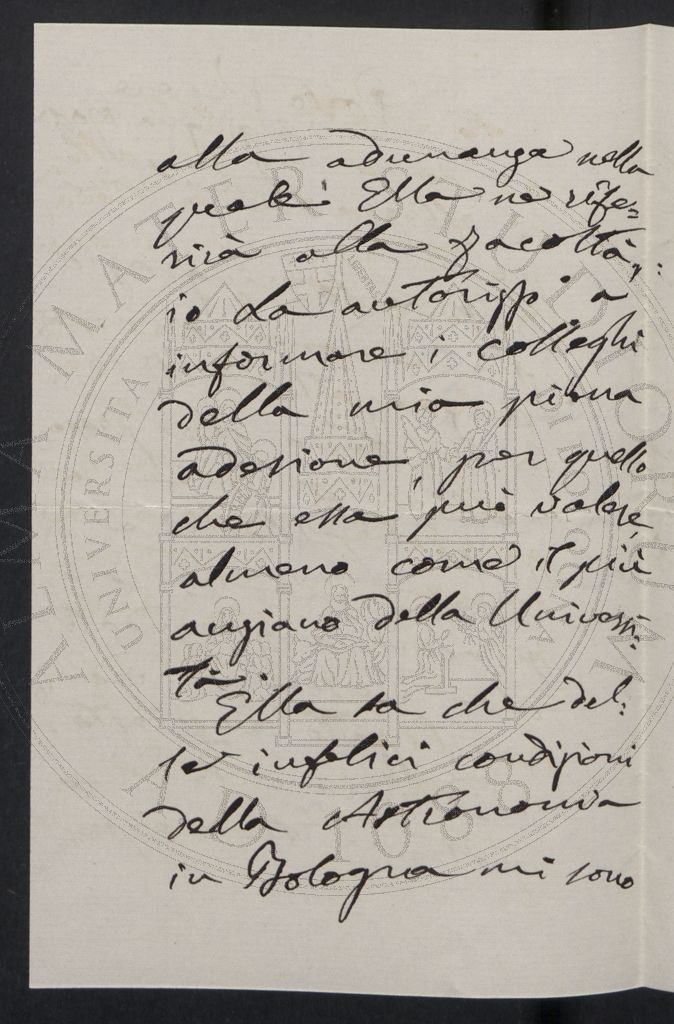 alla adunanza nella
quale Ella ne rife=
rirà alla Facoltà,
io La autorizzo a
informare i colleghi
della mia piena
adesione, per quello
che essa può valere,
almeno come il più
anziano della Universi:
tà.
Ella sa che del:
le infelici condizioni
della Astronomia
in Bologna mi sono
ALMA MATER STUDIORUM
UNIVERSITA
A.D. 1088